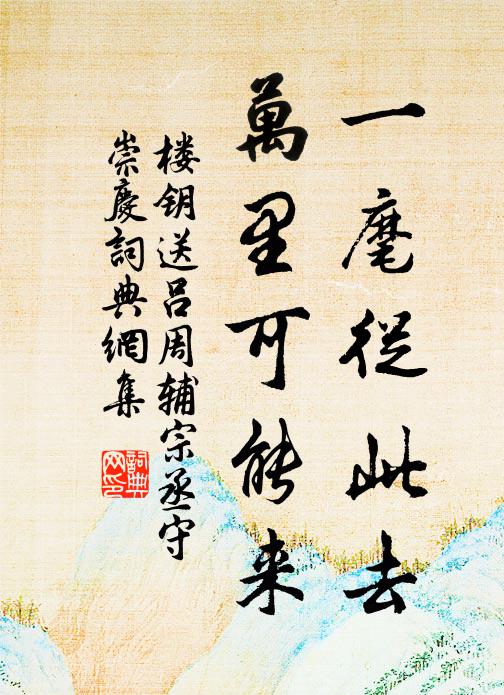 一麾從此去
萬里可能来
楼钥送吕周辅宗丞守
崇慶詞典網集
詞典
网印